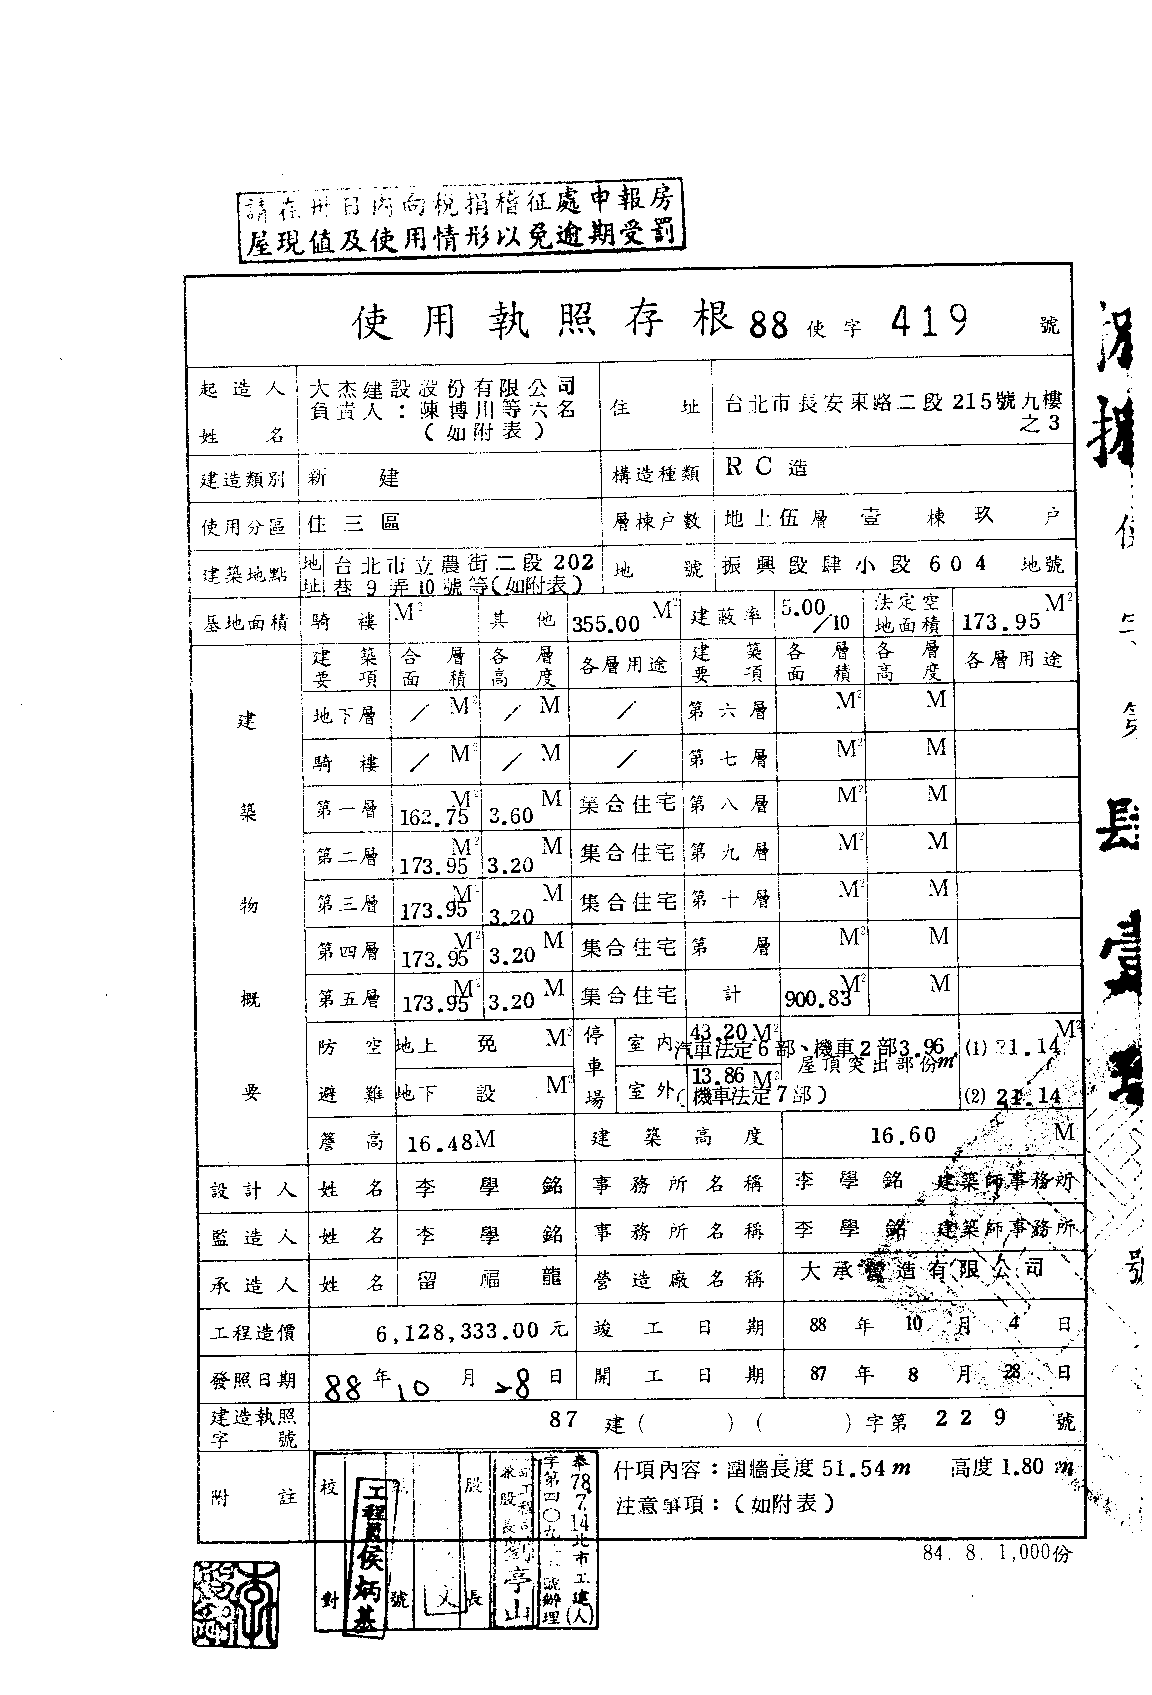 請在卅日內向稅捐稽征處申報房
屋現值及使用情形以免逾期受罰
使用執照存根 88 使字 419 號
起造人姓名 大杰建設股份有限公司
負責人：陳博川等六名
（如附表）
住址 台北市長安東路二段215號九樓
之3
建造類別 新建 構造種類 RC造
使用分區 住三區 層棟户數 地上伍層壹棟玖户
建築地點 地址 台北市立農街二段202
巷9弄10號等(如附表) 地號 振興段肆小段604地號
基地面積 騎樓 M² 其他 355.00 M² 建蔽率 5.00/10 法定空地面積 173.95 M²
建築物概要
建築要項 各層面積 各層高度 各層用途 建築要項 各層面積 各層高度 各層用途
地下層 / M² / M / 第六層 M² M
騎樓 / M² / M / 第七層 M² M
第一層 162.75 M² 3.60 M 集合住宅 第八層 M² M
第二層 173.95 M² 3.20 M 集合住宅 第九層 M² M
第三層 173.95 M² 3.20 M 集合住宅 第十層 M² M
第四層 173.95 M² 3.20 M 集合住宅 第 層 M² M
第五層 173.95 M² 3.20 M 集合住宅 計 900.83 M² M
防空避難 地上 免 M² 停車場 室內 43.20 M²
汽車法定6部、機車2部3.96m² 屋頂突出部份 (1) 21.14 M²
地下 設 M² 室外 13.86 M²
(機車法定7部) (2) 21.14
簷高 16.48M 建築高度 16.60 M
設計人 姓名 李學銘 事務所名稱 李學銘建築師事務所
監造人 姓名 李學銘 事務所名稱 李學銘建築師事務所
承造人 姓名 留福龍 營造廠名稱 大承營造有限公司
工程造價 6,128,333.00元 竣工日期 88年10月4日
發照日期 88年10月28日 開工日期 87年8月28日
建造執照字號 87建( )( )字第229號
附註 什項內容：圍牆長度51.54m 高度1.80m
注意事項：（如附表）
校對
工程員侯炳基
號
股長
亭山
奉78.7.14北市工建(人)
字第四〇九
號辦理
84. 8. 1,000份
使
字
第
肆
壹
號